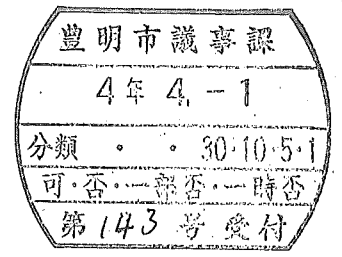 豊明市議事課
4年4.-1
分類 ・ ・ 30・10・5・1
可・否・一部否・一時否
第143号受付